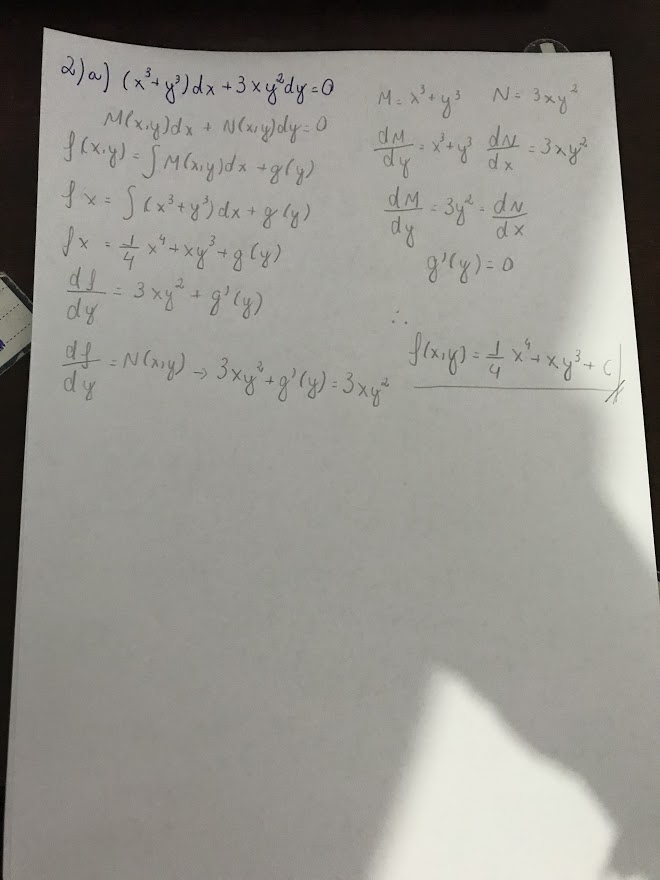 2) a) (x³+y³)dx+3xy²dy=0
M(x,y)dx + N(x,y)dy=0
f(x,y)=∫M(x,y)dx+g(y)
fx=∫(x³+y³)dx+g(y)
fx=1/4 x⁴+xy³+g(y)
df/dy=3xy²+g'(y)
df/dy=N(x,y)→3xy²+g'(y)=3xy²
M=x³+y³ N=3xy²
dM/dy=x³+y³ dN/dx=3xy²
dM/dy=3y²=dN/dx
g'(y)=0
∴
f(x,y)=1/4 x⁴+xy³+C